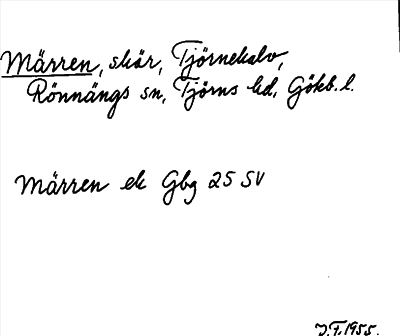 Märren, skär, Tjörnekalv,
Rönnängs sn, Tjörns hd, Gökb. l.
Märren ek Gbg 25 SV
J.F. 1955.